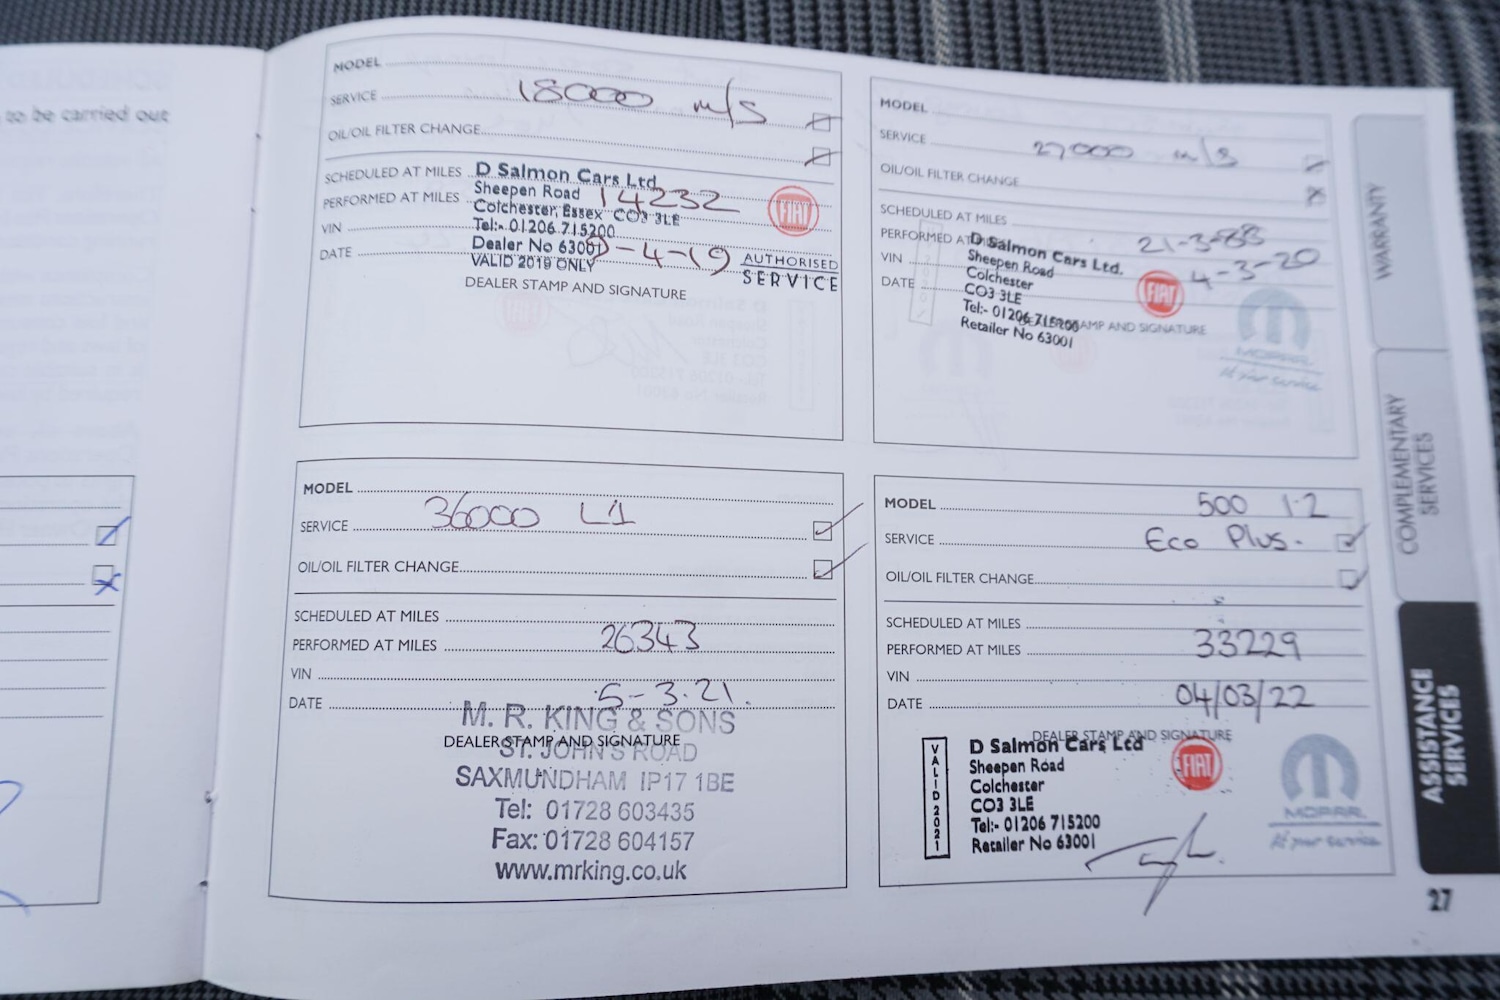 to be carried out
MODEL
SERVICE 18000 m/s
OIL/OIL FILTER CHANGE
SCHEDULED AT MILES
PERFORMED AT MILES 14232
VIN
DATE -4-19
D Salmon Cars Ltd
Sheepen Road
Colchester, Essex CO3 3LE
Tel:- 01206 715200
Dealer No 63001
VALID 2019 ONLY
FIAT
AUTHORISED
SERVICE
DEALER STAMP AND SIGNATURE
MODEL
SERVICE 27000 m/s
OIL/OIL FILTER CHANGE
SCHEDULED AT MILES
PERFORMED AT
VIN
DATE 4-3-20
D Salmon Cars Ltd.
Sheepen Road
Colchester
CO3 3LE
Tel:- 01206 715200
Retailer No 63001
FIAT
AMP AND SIGNATURE
MOPAR
At your service
MODEL
SERVICE 36000 L1
OIL/OIL FILTER CHANGE
SCHEDULED AT MILES
PERFORMED AT MILES 26343
VIN
DATE 5-3.21.
DEALER STAMP AND SIGNATURE
M. R. KING & SONS
ST. JOHN'S ROAD
SAXMUNDHAM IP17 1BE
Tel: 01728 603435
Fax: 01728 604157
www.mrking.co.uk
MODEL 500 1.2
SERVICE Eco Plus.
OIL/OIL FILTER CHANGE
SCHEDULED AT MILES
PERFORMED AT MILES 33229
VIN
DATE 04/03/22
DEALER STAMP AND SIGNATURE
VALID 2021
D Salmon Cars Ltd
Sheepen Road
Colchester
CO3 3LE
Tel:- 01206 715200
Retailer No 63001
FIAT
MOPAR
At your service
WARRANTY
COMPLEMENTARY
SERVICES
ASSISTANCE
SERVICES
27